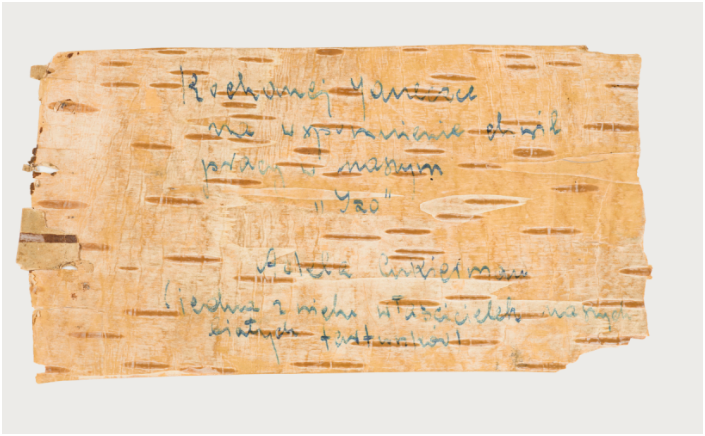 Kochanej Janeczce
na wspomnienie chwil
pracy w naszym
„Izo"
Adela Cukierman
(jedna z wielu właścicielek naszych
białych fartuchów)